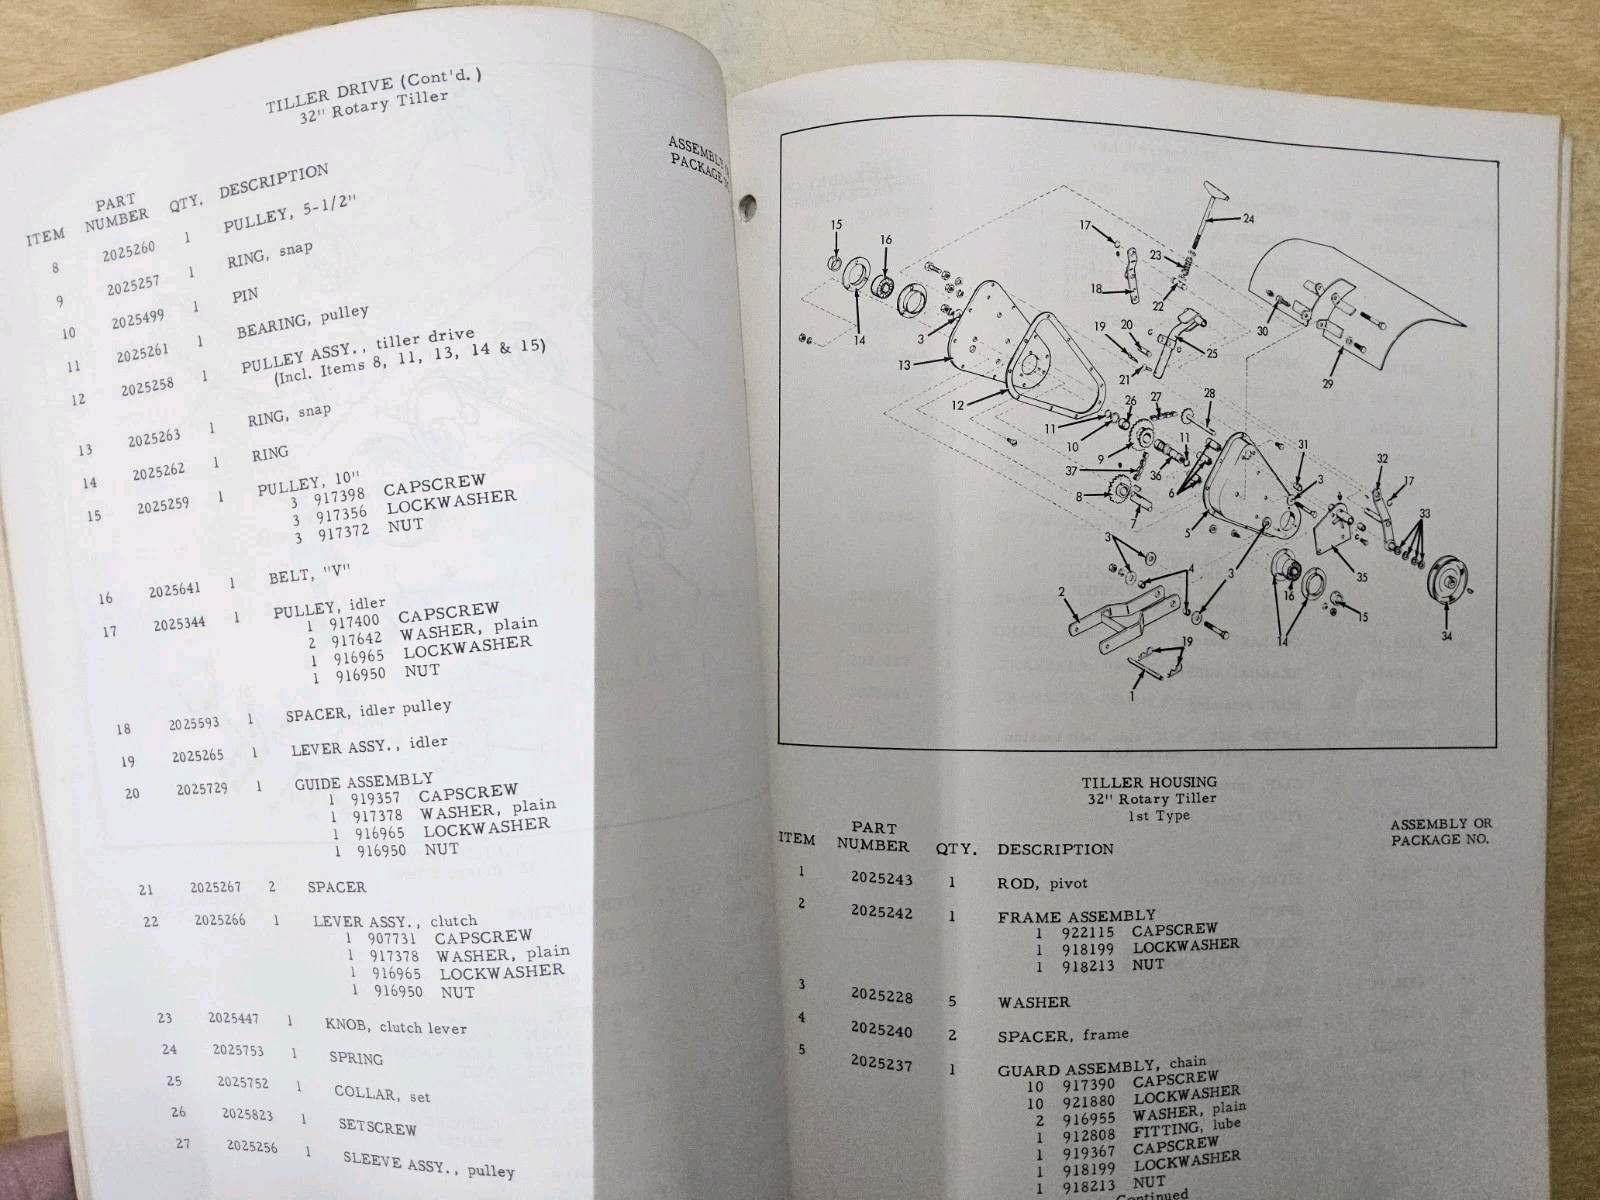 TILLER DRIVE (Cont'd. )
32" Rotary Tiller
ITEM PART NUMBER QTY. DESCRIPTION ASSEMBLY PACKAGE
8 2025260 1 PULLEY, 5-1/2"
9 2025257 1 RING, snap
10 2025499 1 PIN
11 2025261 1 BEARING, pulley
12 2025258 1 PULLEY ASSY., tiller drive
(Incl. Items 8, 11, 13, 14 & 15)
13 2025263 1 RING, snap
14 2025262 1 RING
15 2025259 1 PULLEY, 10"
3 917398 CAPSCREW
3 917356 LOCKWASHER
3 917372 NUT
16 2025641 1 BELT, "V"
17 2025344 1 PULLEY, idler
1 917400 CAPSCREW
2 917642 WASHER, plain
1 916965 LOCKWASHER
1 916950 NUT
18 2025593 1 SPACER, idler pulley
19 2025265 1 LEVER ASSY., idler
20 2025729 1 GUIDE ASSEMBLY
1 919357 CAPSCREW
1 917378 WASHER, plain
1 916965 LOCKWASHER
1 916950 NUT
21 2025267 2 SPACER
22 2025266 1 LEVER ASSY., clutch
1 907731 CAPSCREW
1 917378 WASHER, plain
1 916965 LOCKWASHER
1 916950 NUT
23 2025447 1 KNOB, clutch lever
24 2025753 1 SPRING
25 2025752 1 COLLAR, set
26 2025823 1 SETSCREW
27 2025256 1 SLEEVE ASSY., pulley
24
17
15
16
23
18
22
30
3
14
19
20
25
13
21
29
12
26
27
28
11
10
11
31
32
9
37
36
3
17
8
6
7
5
33
3
4
3
16
35
2
15
34
19
14
1
TILLER HOUSING
32" Rotary Tiller
1st Type
ITEM PART NUMBER QTY. DESCRIPTION ASSEMBLY OR PACKAGE NO.
1 2025243 1 ROD, pivot
2 2025242 1 FRAME ASSEMBLY
1 922115 CAPSCREW
1 918199 LOCKWASHER
1 918213 NUT
3 2025228 5 WASHER
4 2025240 2 SPACER, frame
5 2025237 1 GUARD ASSEMBLY, chain
10 917390 CAPSCREW
10 921880 LOCKWASHER
2 916955 WASHER, plain
1 912808 FITTING, lube
1 919367 CAPSCREW
1 918199 LOCKWASHER
1 918213 NUT
Continued